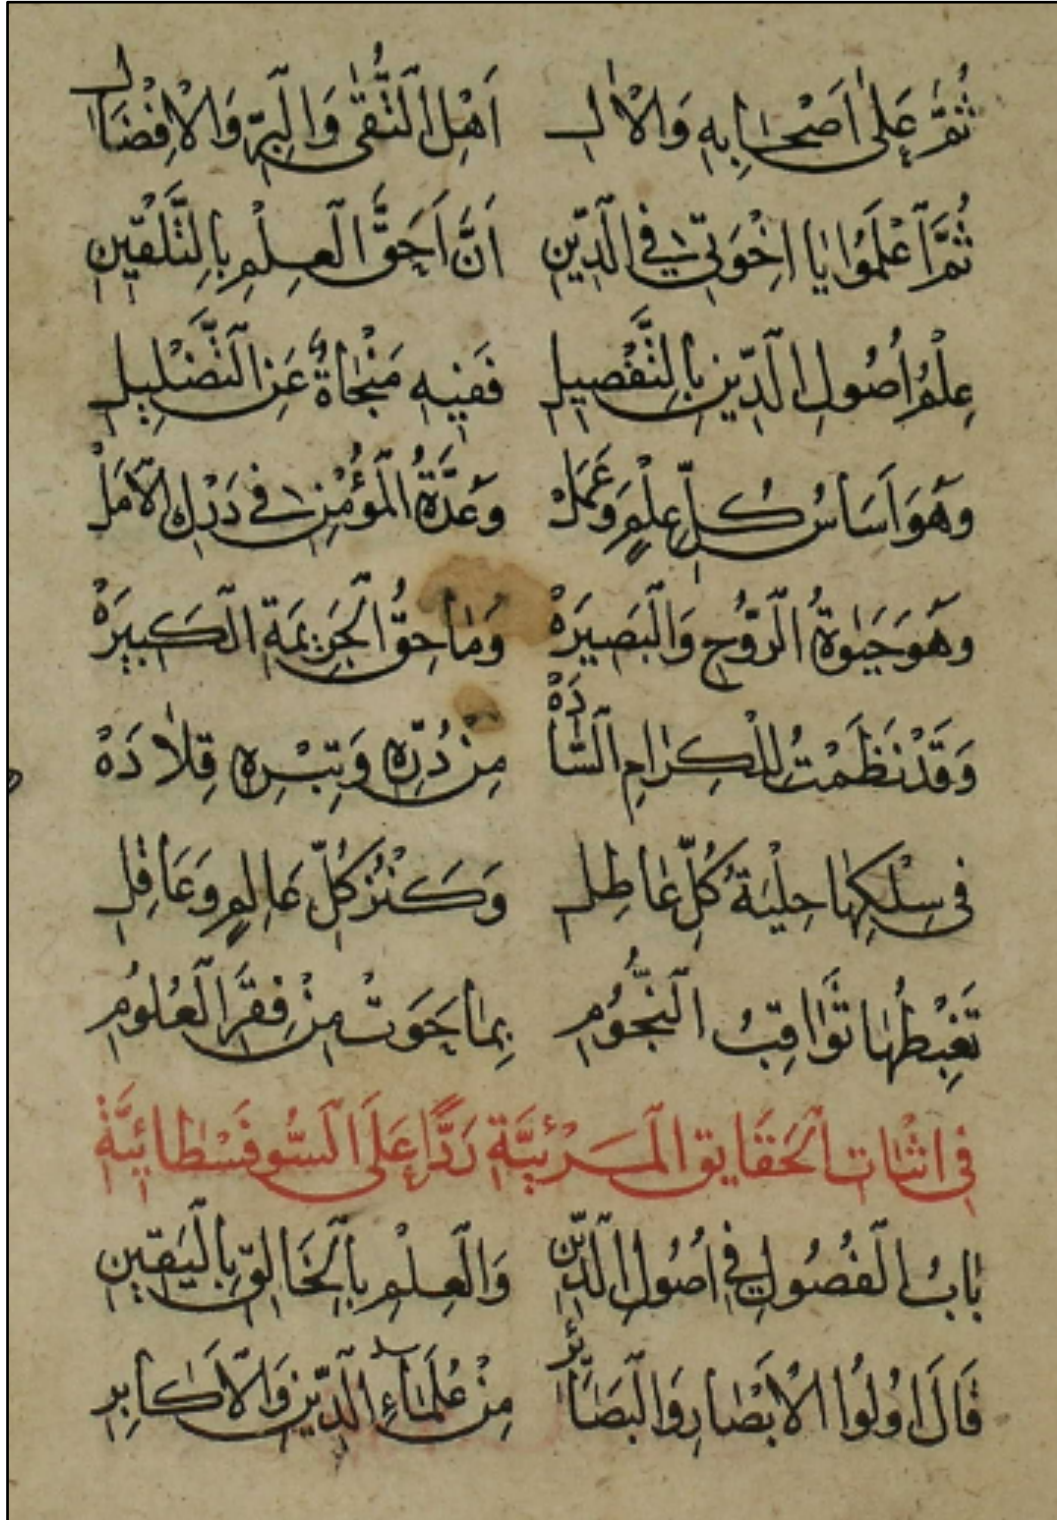 ثُمَّ عَلٰى اَصْحَابِهِ وَالْاٰلِ اَهْلِ التُّقٰى وَالْبِرِّ وَالْاِفْضَالِ
ثُمَّ اعْلَمُوا يَا اِخْوَتِي فِي الدِّينِ اَنَّ اَحَقَّ الْعِلْمِ بِالتَّلْقِينِ
عِلْمُ اُصُولِ الدِّينِ بِالتَّفْصِيلِ فَفِيهِ مَنْجَاةٌ عَنِ التَّضْلِيلِ
وَهْوَ اَسَاسُ كُلِّ عِلْمٍ وَعَمَلْ وَعُدَّةُ الْمُؤْمِنِ فِي دَرْكِ الْاَمَلْ
وَهْوَ حَيٰوةُ الرُّوحِ وَالْبَصِيرَهْ وَمَاحِقُ الْجَرِيمَةِ الْكَبِيرَهْ
وَقَدْ نَظَمْتُ لِلْكِرَامِ السَّادَهْ مِنْ دُرِّهِ وَتِبْرِهِ قِلَادَهْ
فِي سِلْكِهَا حِلْيَةُ كُلِّ عَاطِلِ وَكَنْزُ كُلِّ عَالِمٍ وَعَاقِلِ
تَغْبِطُهَا ثَوَاقِبُ النُّجُومِ بِمَا حَوَتْ مِنْ فِقَرِ الْعُلُومِ
فِي اِثْبَاتِ الْحَقَايِقِ الْمَرْئِيَّةِ رَدًّا عَلَى السُّوفَسْطَائِيَّةْ
بَابُ الْفُصُولِ فِي اُصُولِ الدِّينِ وَالْعِلْمِ بِالْخَالِقِ بِالْيَقِينِ
قَالَ اُولُوا الْاَبْصَارِ وَالْبَصَائِرِ مِنْ عُلَمَاءِ الدِّينِ وَالْاَكَابِرِ